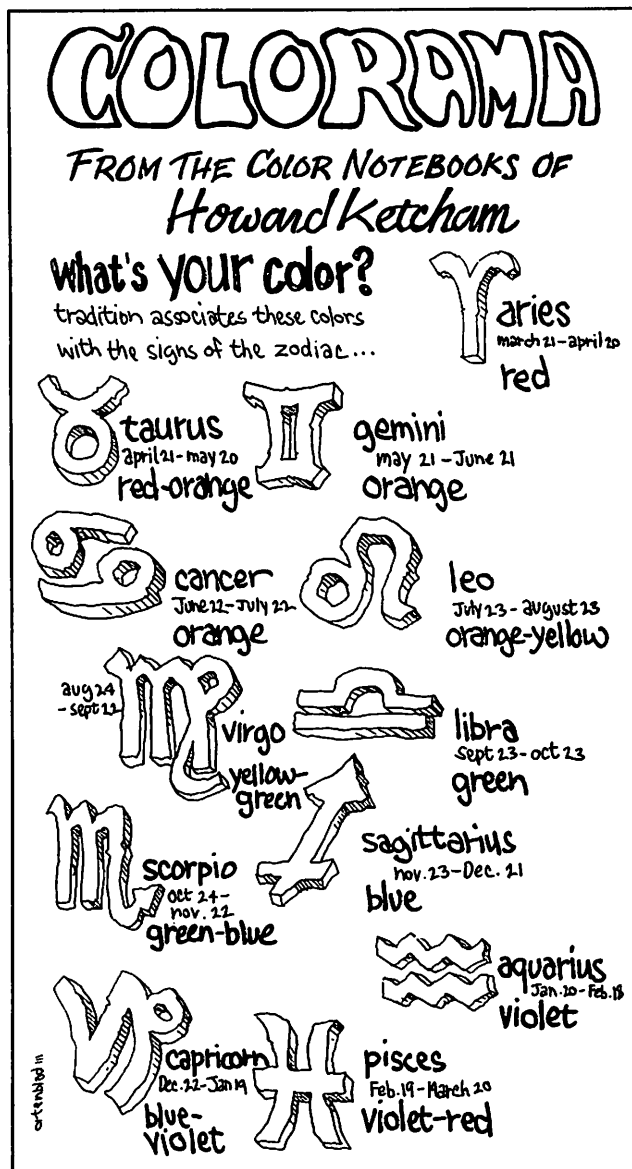 COLORAMA
FROM THE COLOR NOTEBOOKS OF
Howard Ketcham
what's your color?
tradition associates these colors
with the signs of the zodiac...
aries
march 21-april 20
red
taurus
april 21-may 20
red-orange
gemini
may 21-June 21
orange
cancer
June 22-July 22
orange
leo
July 23-august 23
orange-yellow
aug 24
-sept 22
virgo
yellow-
green
libra
sept 23-oct 23
green
scorpio
oct 24-
nov. 22
green-blue
sagittarius
nov. 23-Dec. 21
blue
aquarius
Jan. 20-Feb. 18
violet
capricorn
Dec. 22-Jan 19
blue-
violet
pisces
Feb. 19-March 20
violet-red